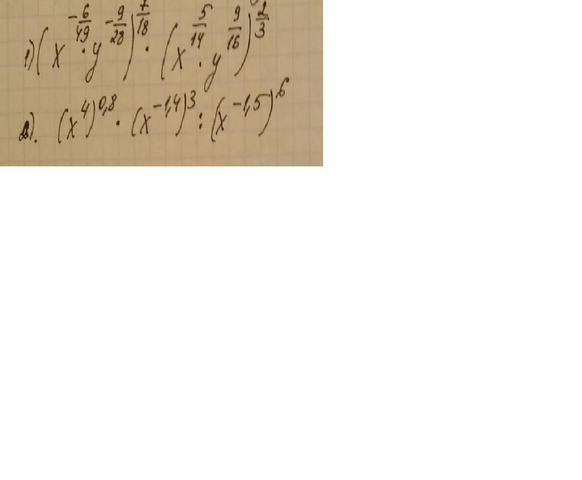 1) (x^{-\frac{6}{49}} \cdot y^{-\frac{9}{28}})^{\frac{7}{18}} \cdot (x^{\frac{5}{14}} \cdot y^{\frac{9}{16}})^{\frac{2}{3}}
2). (x^4)^{0,8} \cdot (x^{-1,4})^3 : (x^{-1,5})^{,6}